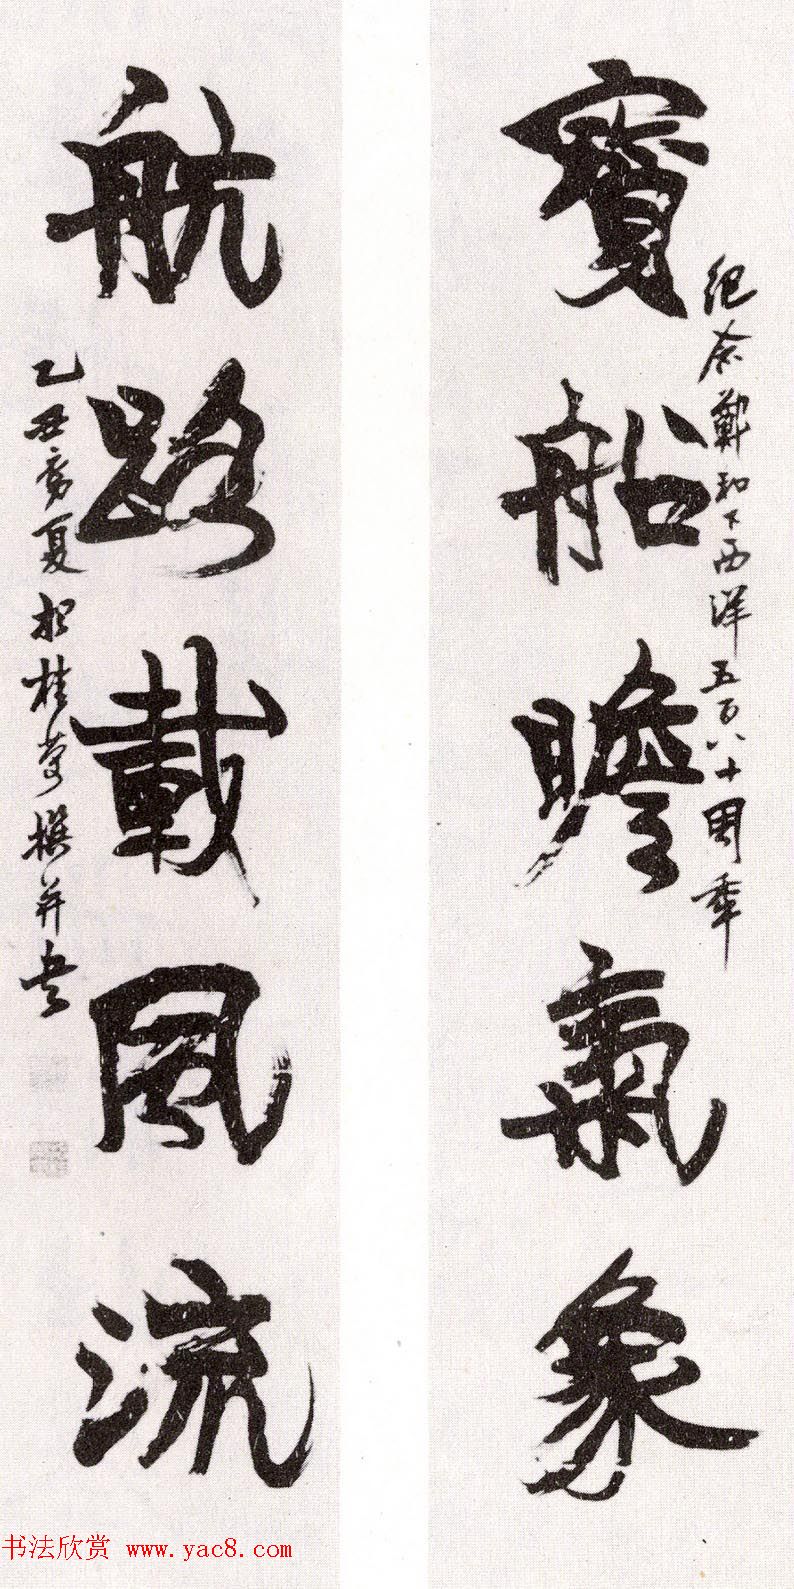 寳船瞻氣象
紀念鄭和下西洋五百八十周年
航路載風流
乙丑孟夏 桂 撰并書
书法欣赏 www.yac8.com